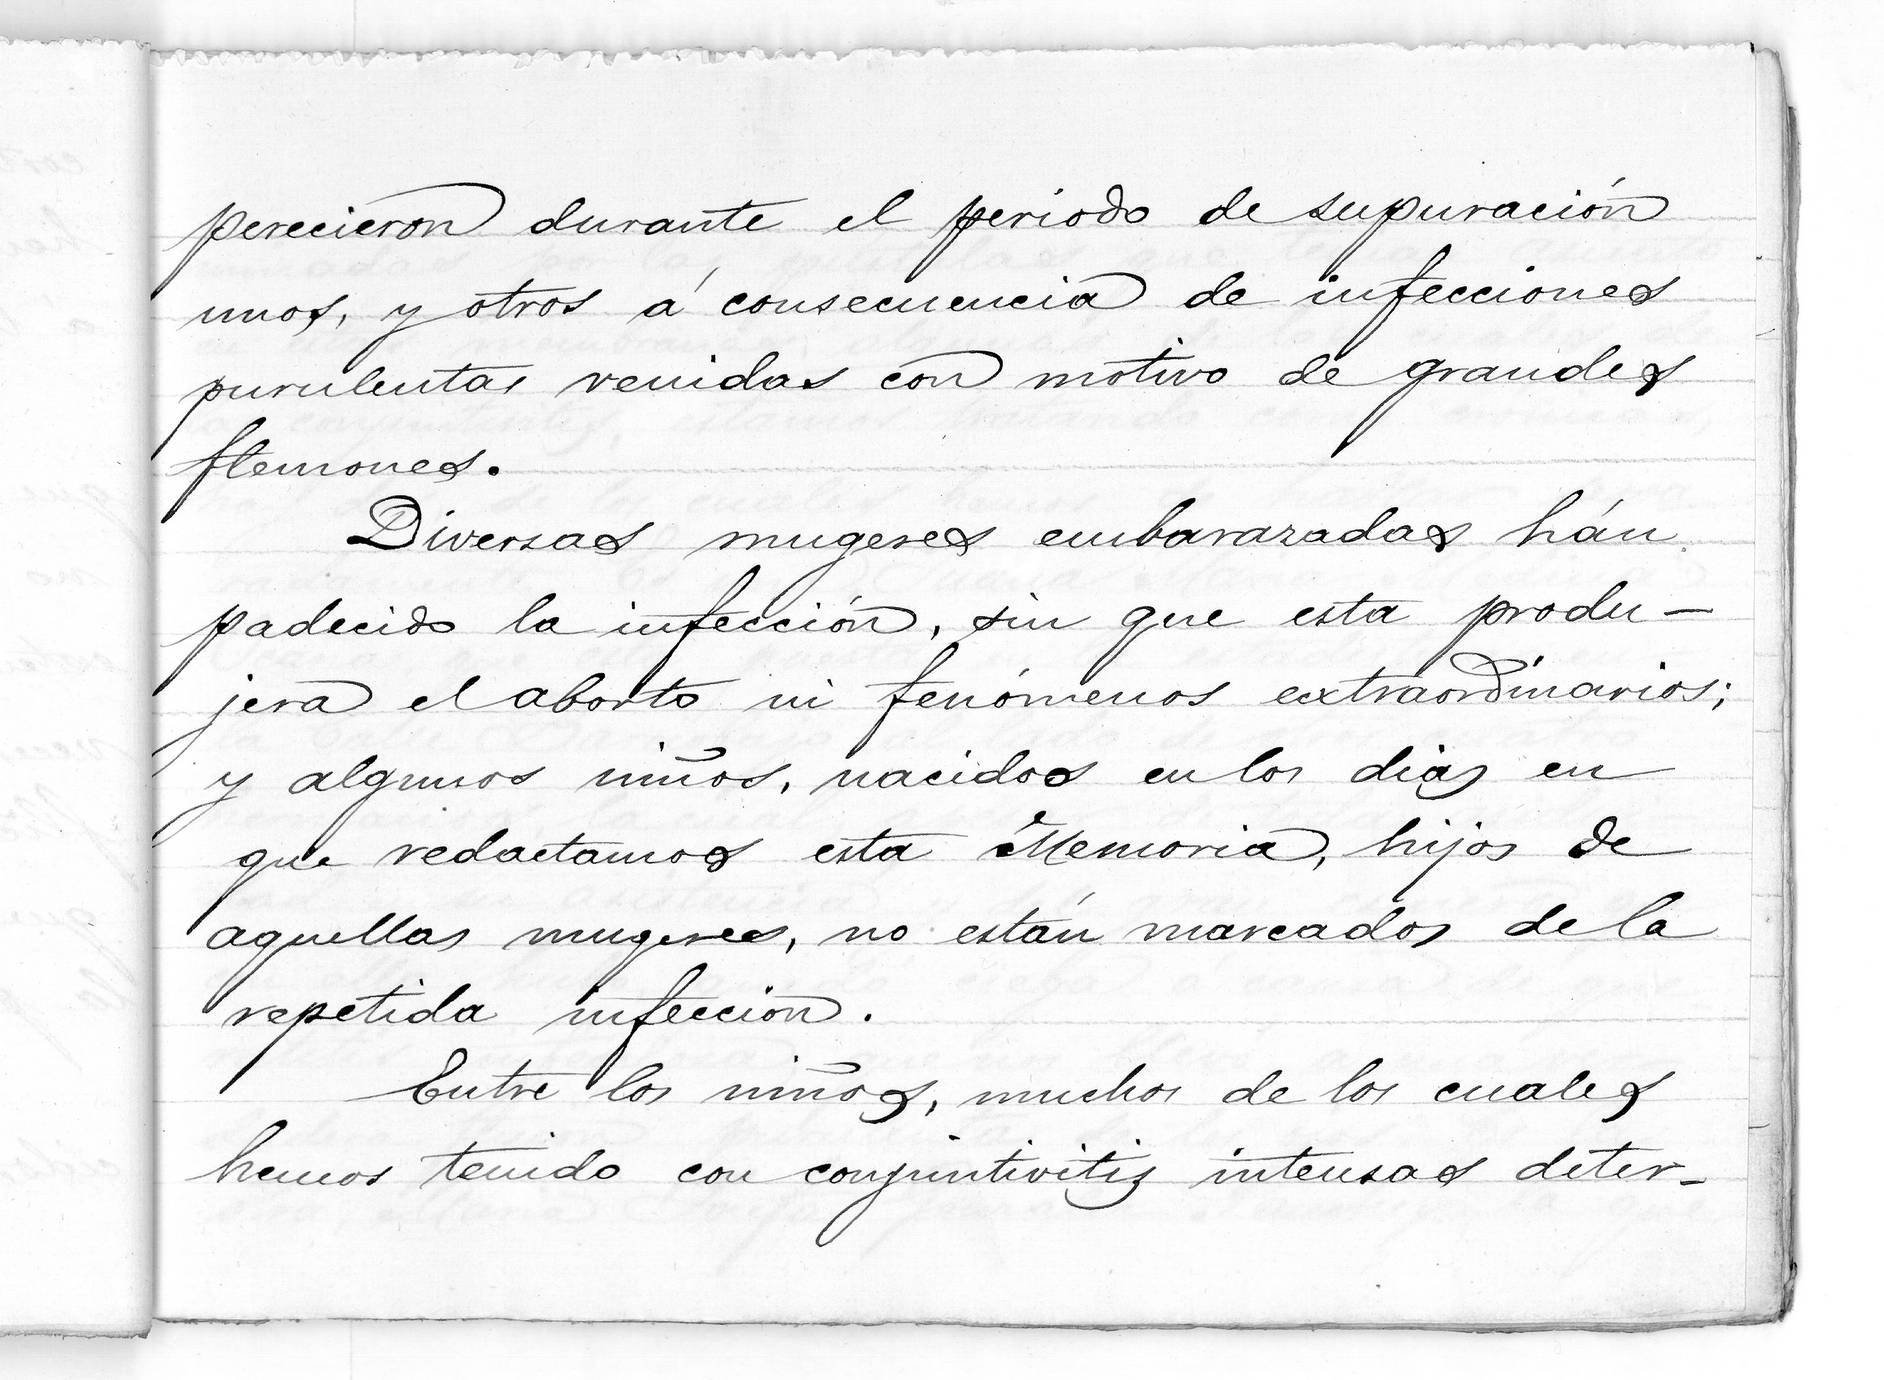 perecieron durante el periodo de supuración
unos, y otros á consecuencia de infecciones
purulentas venidas con motivo de grandes
flemones.
Diversas mugeres embarazadas hán
padecido la infección, sin que esta produ-
jera el aborto ni fenómenos extraordinarios;
y algunos niños, nacidos en los dias en
que redactamos esta Memoria, hijos de
aquellas mugeres, no están marcados de la
repetida infeccion.
Entre los niños, muchos de los cuales
hemos tenido con conjuntivitis intensas deter-